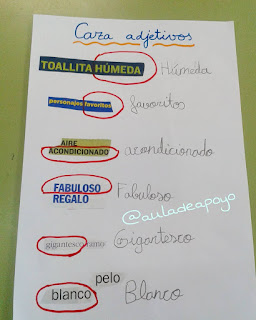 Caza adjetivos
TOALLITA HÚMEDA Húmeda
personajes favoritos favoritos
AIRE
ACONDICIONADO acondicionado
FABULOSO Fabuloso
REGALO
@auladeapoyo
gigantesco ramo Gigantesco
pelo
blanco Blanco